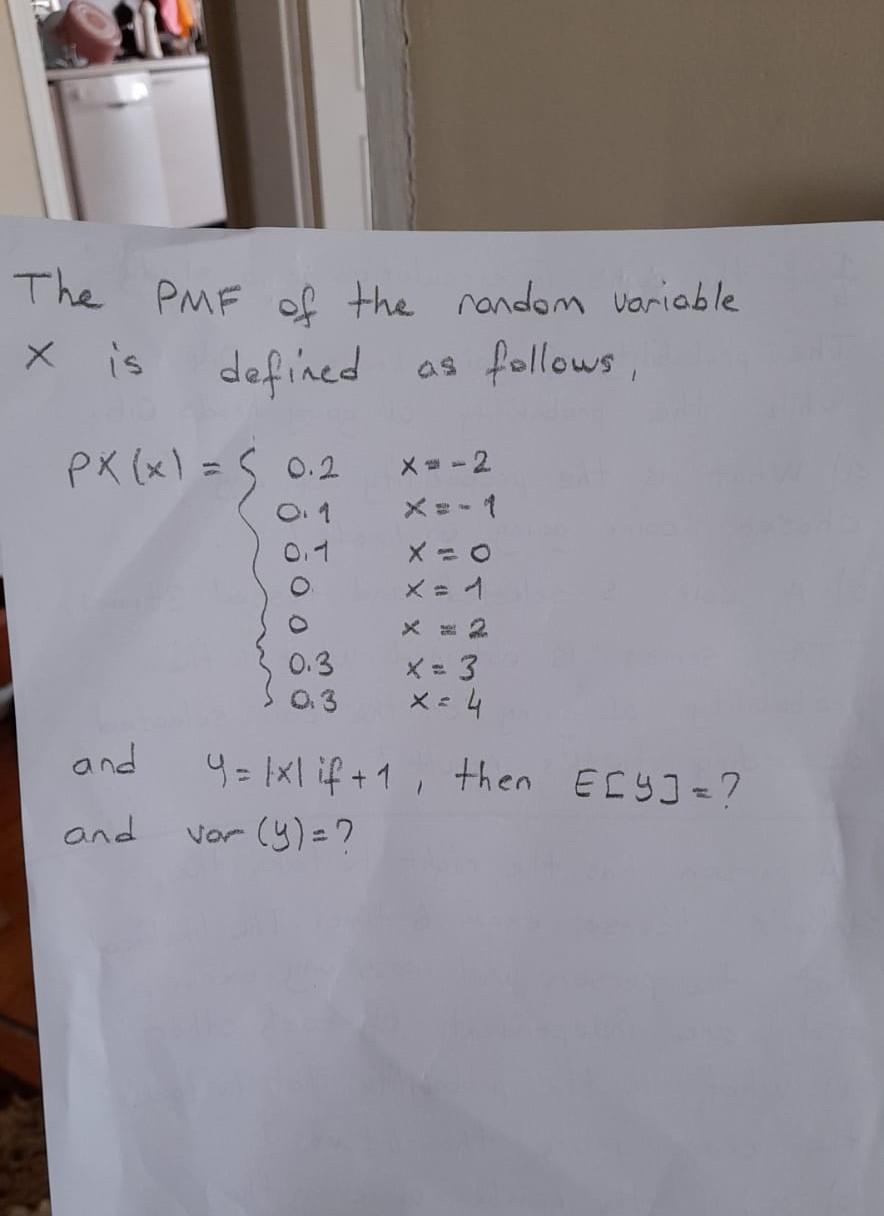 The PMF of the random variable
X is defined as follows,
PX(x) = { 0.2 x=-2
0.1 x=-1
0.1 x=0
0 x=1
0 x=2
0.3 x=3
0.3 x=4
and y=|x| if +1, then E[y]=?
and var(y)=?